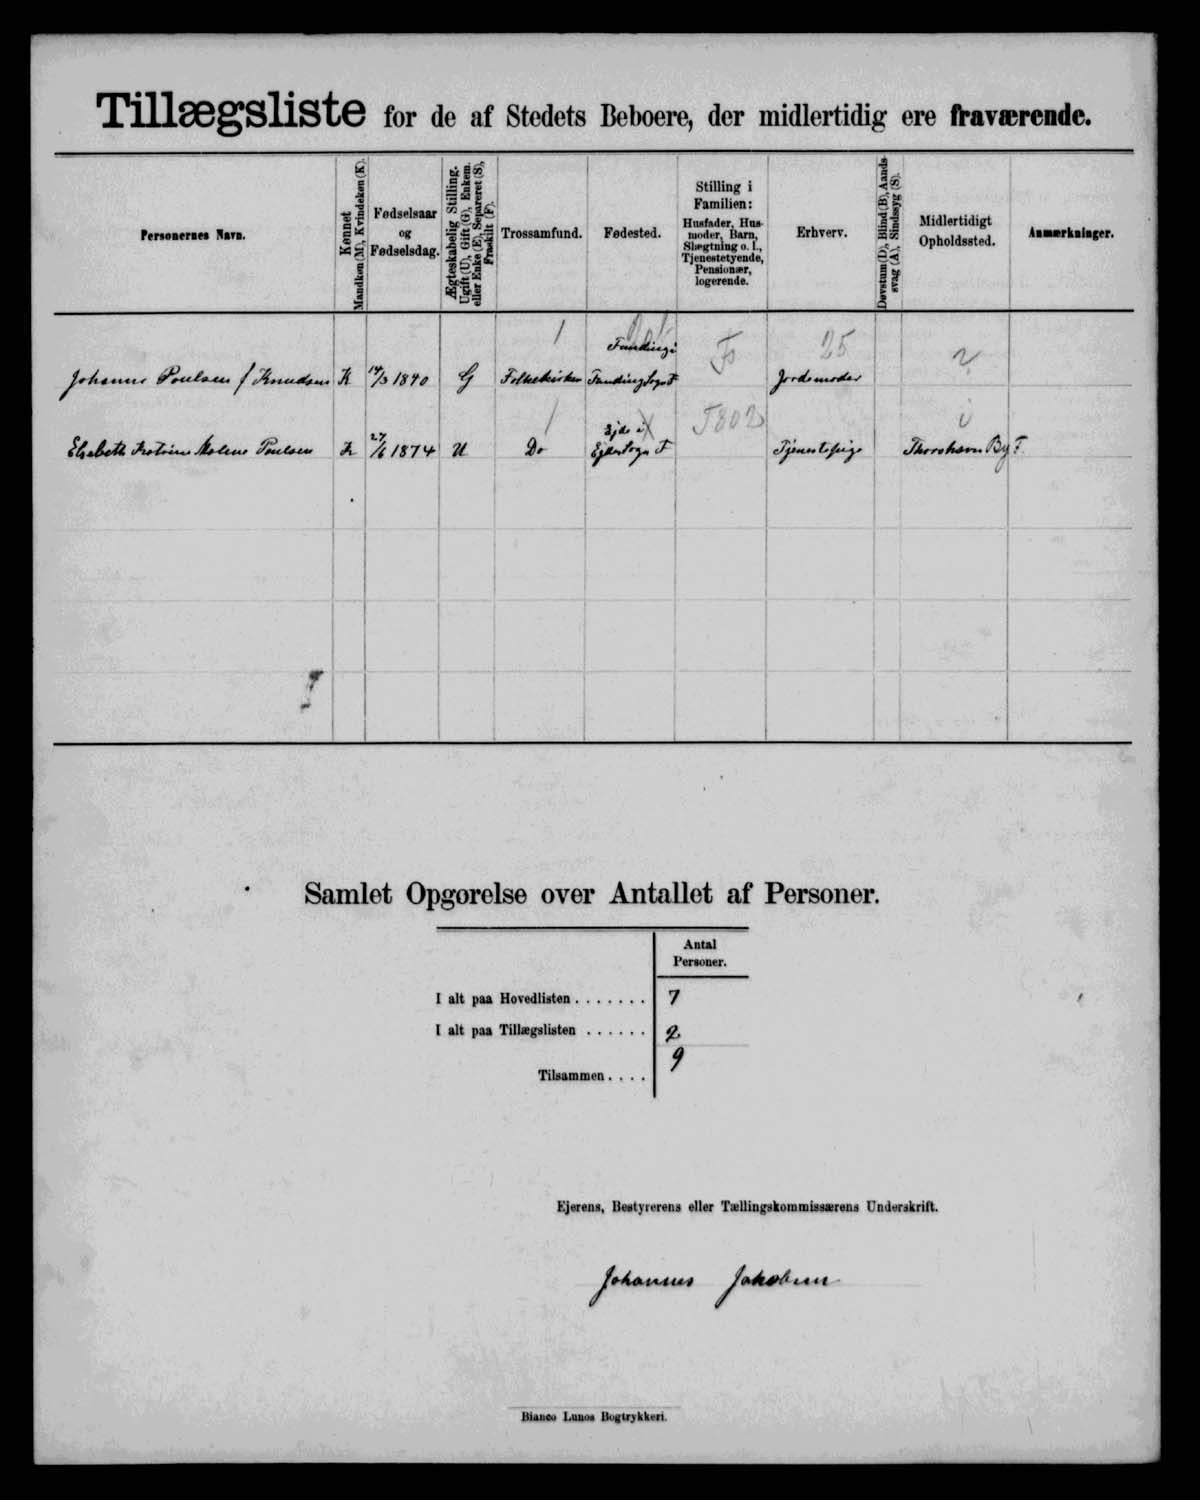 Tillægsliste for de af Stedets Beboere, der midlertidig ere fraværende.
Personernes Navn.
Kønnet
Mandkøn (M), Kvindekøn (K).
Fødselsaar
og
Fødselsdag.
Ægteskabelig Stilling.
Ugift (U), Gift (G), Enkem.
eller Enke (E), Separeret (S),
Fraskilt (F).
Trossamfund.
Fødested.
Stilling i
Familien:
Husfader, Hus-
moder, Barn,
Slægtning o. l.,
Tjenestetyende,
Pensionær,
logerende.
Erhverv.
Døvstum (D), Blind (B), Aands-
svag (A), Sindssyg (S).
Midlertidigt
Opholdssted.
Anmærkninger.
1 Fo 25 ?
Funding i
Johanne Poulsen f Knudsen K 14/3 1840 G Folkekirken Funding Sogn F Jordemoder
1 F802 i
Ejde i
Elsebeth Katrine Malene Poulsen K 27/6 1874 U Do Ejde Sogn F Tjenestepige Thorshavn By F.
Samlet Opgørelse over Antallet af Personer.
Antal
Personer.
I alt paa Hovedlisten . . . . . . . 7
I alt paa Tillægslisten . . . . . . 2
Tilsammen . . . . 9
Ejerens, Bestyrerens eller Tællingskommissærens Underskrift.
Johannes Jakobsen
Bianco Lunos Bogtrykkeri.